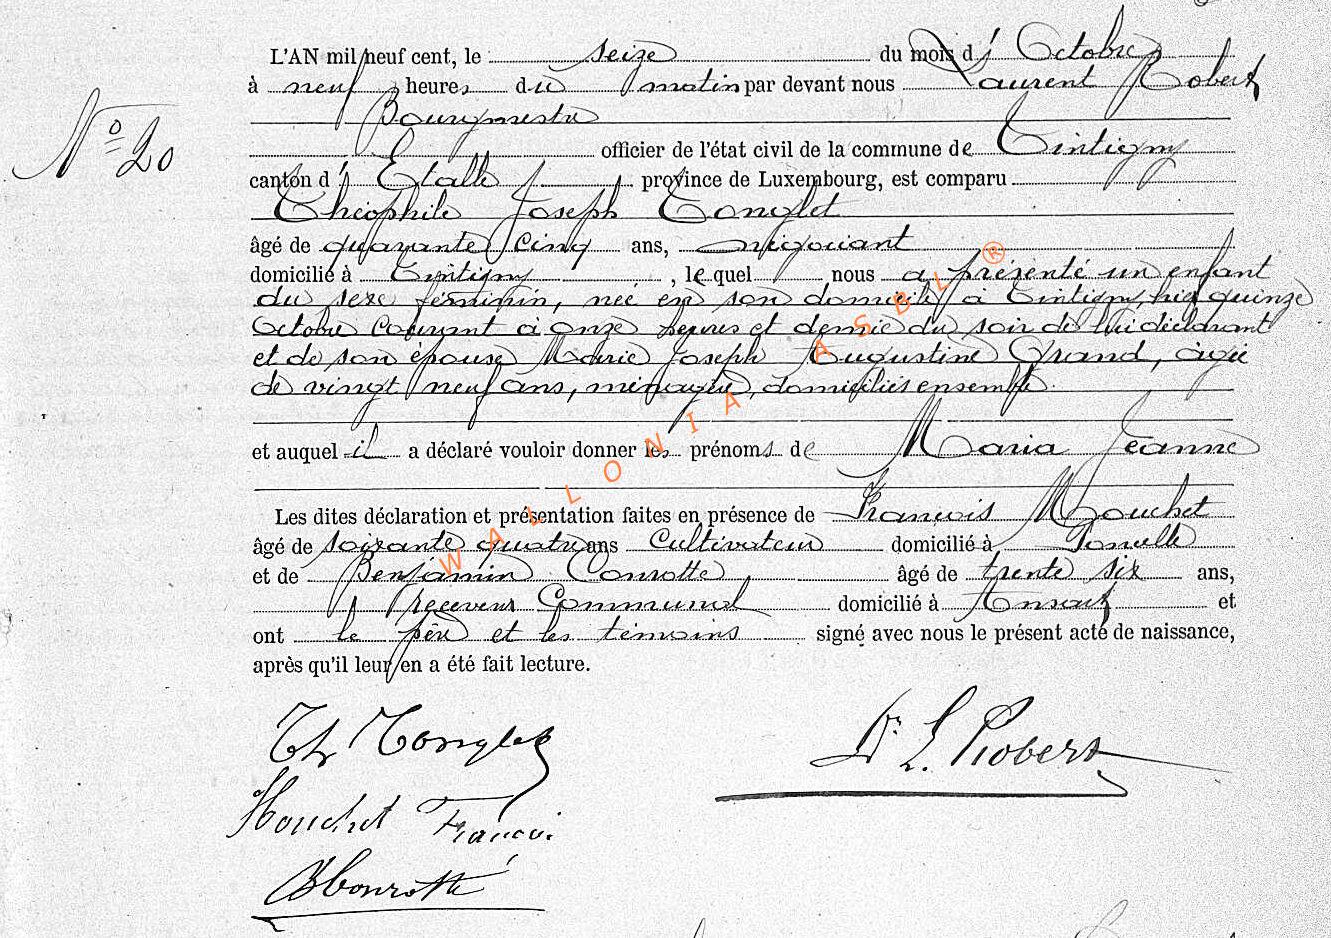 L'AN mil neuf cent, le seize du mois d'Octobre
à neuf heures du matin par devant nous Laurent Robert
Bourgmestre
officier de l'état civil de la commune de Tintigny
canton d'Etalle province de Luxembourg, est comparu
Théophile Joseph Tonglet
âgé de quarante cinq ans, négociant
domicilié à Tintigny, lequel nous a présenté un enfant
du sexe féminin, née en son domicile à Tintigny, hier quinze
Octobre courant à onze heures et demie du soir de lui déclarant
et de son épouse Marie Joseph Augustine Grand, âgée
de vingt neuf ans, ménagère, domiciliés ensemble.
N° 20
et auquel il a déclaré vouloir donner les prénoms de Maria Jeanne
Les dites déclaration et présentation faites en présence de François Mouchet
âgé de soixante quatre ans Cultivateur domicilié à
et de Benjamin Conrotte âgé de trente six ans,
receveur Communal domicilié à Ansart et
ont le père et les témoins signé avec nous le présent acte de naissance,
après qu'il leur en a été fait lecture.
Th Tonglet
Dr L. Robert
Mouchet François
B Conrotte
WALLONIA ASBL ®